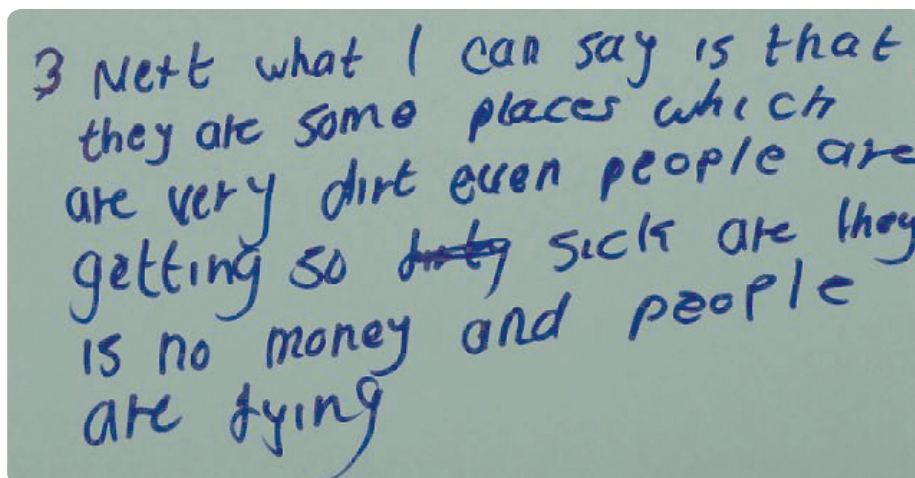 3 Next what I can say is that
they are some places which
are very dirt even people are
getting so sick are they
is no money and people
are dying